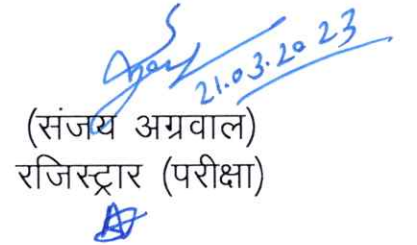 21.03.2023
(संजय अग्रवाल)
रजिस्ट्रार (परीक्षा)